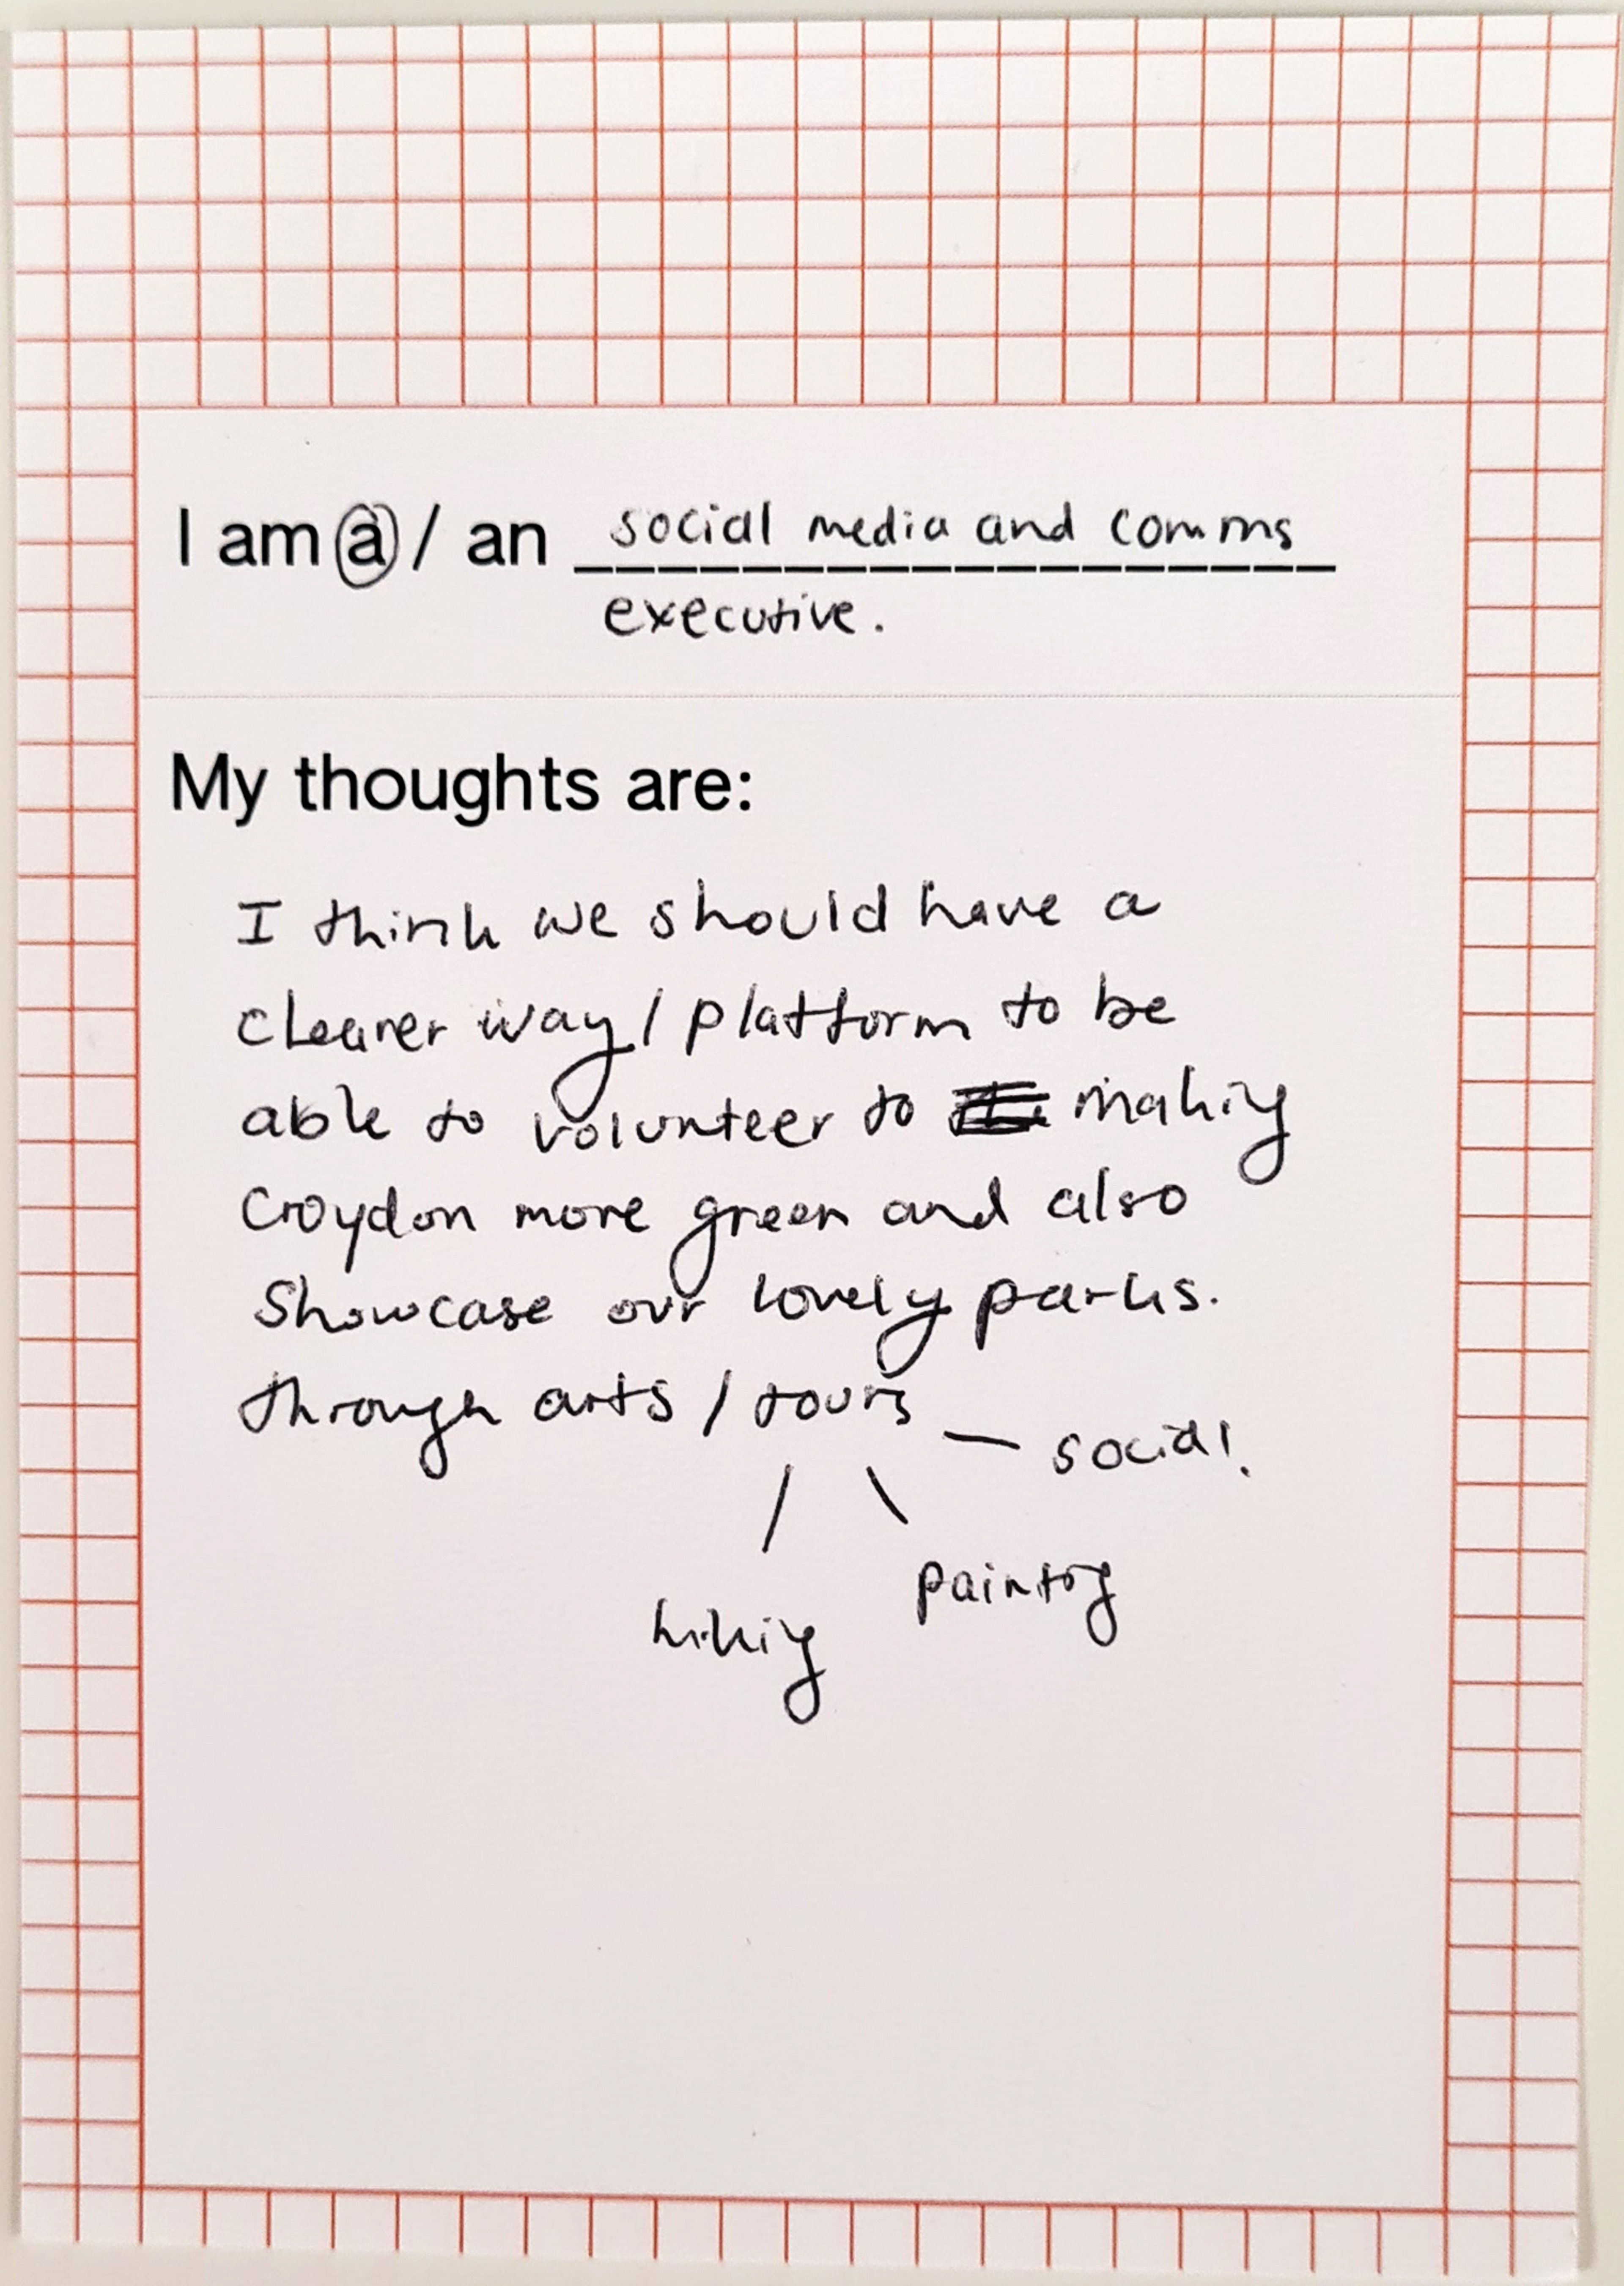 I am a / an social media and comms
executive.
My thoughts are:
I think we should have a
clearer way / platform to be
able to volunteer to making
Croydon more green and also
Showcase our lovely parks.
through arts / tours
— social.
/ \
painting
hiking